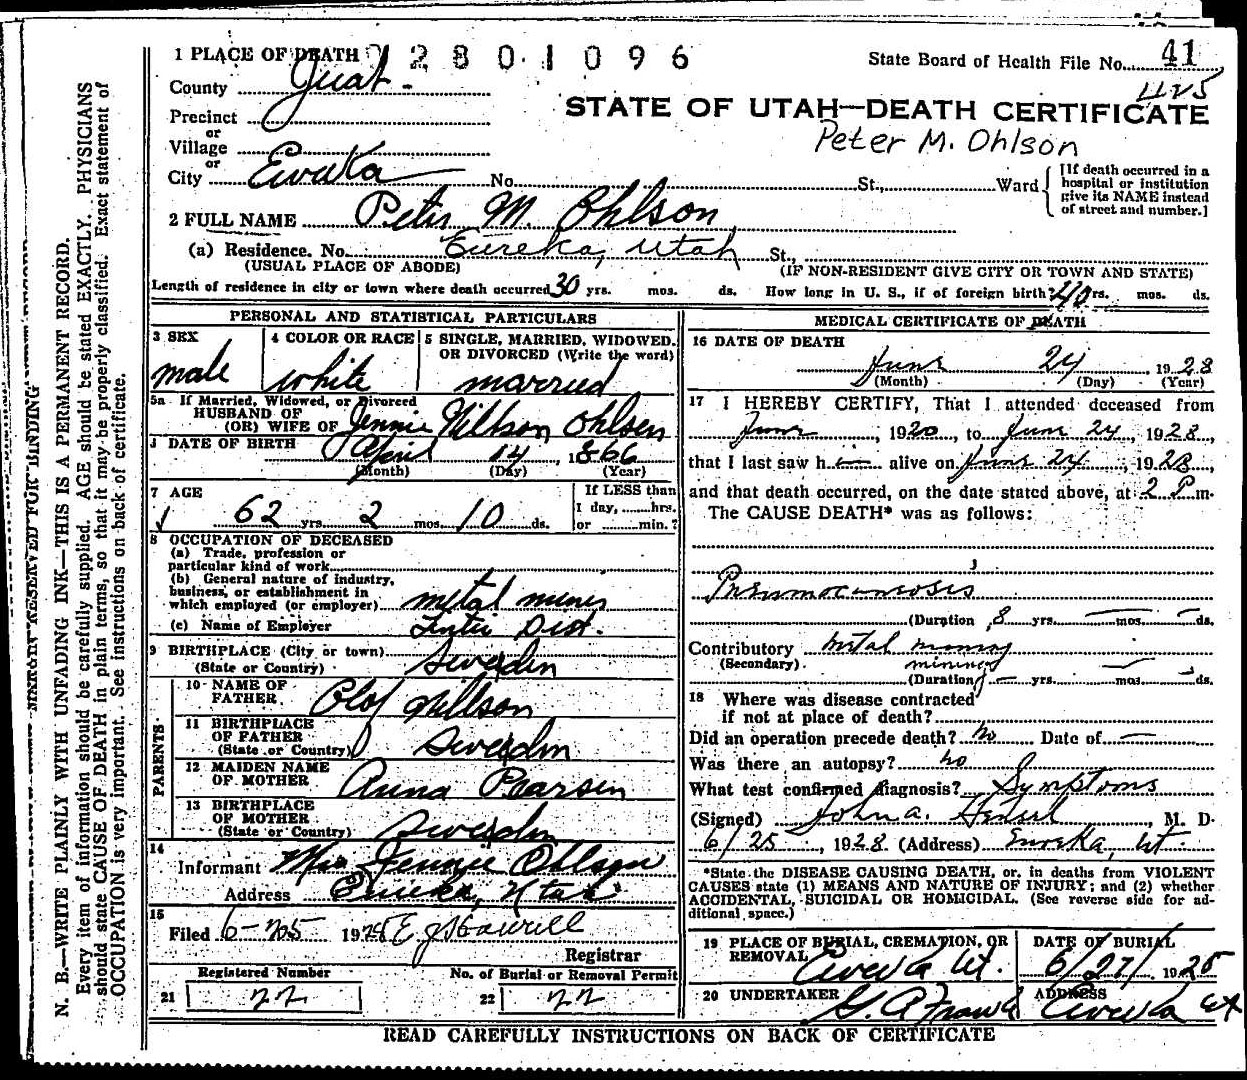 1 PLACE OF DEATH
12801096
State Board of Health File No. 41
County Juab
STATE OF UTAH—DEATH CERTIFICATE
Precinct
Peter M. Ohlson
or
Village
or
City Eureka No. St., Ward
[If death occurred in a
hospital or institution
give its NAME instead
of street and number.]
2 FULL NAME Peter M. Ohlson
(a) Residence. No. Eureka, Utah St.,
(USUAL PLACE OF ABODE) (IF NON-RESIDENT GIVE CITY OR TOWN AND STATE)
Length of residence in city or town where death occurred 30 yrs. mos. ds. How long in U. S., if of foreign birth? 40 yrs. mos. ds.
PERSONAL AND STATISTICAL PARTICULARS
3 SEX
male
4 COLOR OR RACE
white
5 SINGLE, MARRIED, WIDOWED,
OR DIVORCED (Write the word)
married
5a If Married, Widowed, or Divorced
HUSBAND OF
(OR) WIFE OF Jennie Nillson Ohlsen
DATE OF BIRTH April 14, 1866
(Month) (Day) (Year)
7 AGE
62 yrs. 2 mos. 10 ds.
If LESS than
1 day, hrs.
or min.?
8 OCCUPATION OF DECEASED
(a) Trade, profession or
particular kind of work
(b) General nature of industry,
business, or establishment in
which employed (or employer) metal mines
(c) Name of Employer Tintic Dist.
9 BIRTHPLACE (City or town)
(State or Country) Sweden
PARENTS
10 NAME OF
FATHER Olof Nillson
11 BIRTHPLACE
OF FATHER
(State or Country) Sweden
12 MAIDEN NAME
OF MOTHER Anna Pearsen
13 BIRTHPLACE
OF MOTHER
(State or Country) Sweden
14
Informant Mrs Jennie Ohlson
Address Eureka, Utah
15
Filed 6-25 1928
Registrar
Registered Number
21 22
No. of Burial or Removal Permit
22 22
MEDICAL CERTIFICATE OF DEATH
16 DATE OF DEATH
June 24, 1928
(Month) (Day) (Year)
17 I HEREBY CERTIFY, That I attended deceased from
June, 1920, to June 24, 1928,
that I last saw h alive on June 24, 1928,
and that death occurred, on the date stated above, at 2 P.m.
The CAUSE DEATH* was as follows:
Pneumoconiosis
(Duration 8 yrs. mos. ds.
Contributory metal
(Secondary) mining
(Duration yrs. mos. ds.
18 Where was disease contracted
if not at place of death?
Did an operation precede death? no Date of —
Was there an autopsy? no
What test confirmed diagnosis? Symptoms
(Signed) John A. M. D.
6/25, 1928 (Address) Eureka, Ut.
*State the DISEASE CAUSING DEATH, or, in deaths from VIOLENT
CAUSES state (1) MEANS AND NATURE OF INJURY; and (2) whether
ACCIDENTAL, SUICIDAL OR HOMICIDAL. (See reverse side for ad-
ditional space.)
19 PLACE OF BURIAL, CREMATION, OR
REMOVAL Eureka Ut.
DATE OF BURIAL
6/27/, 1928
20 UNDERTAKER
ADDRESS
Eureka Ut
READ CAREFULLY INSTRUCTIONS ON BACK OF CERTIFICATE
N. B.—WRITE PLAINLY WITH UNFADING INK—THIS IS A PERMANENT RECORD.
Every item of information should be carefully supplied. AGE should be stated EXACTLY. PHYSICIANS
should state CAUSE OF DEATH in plain terms, so that it may be properly classified. Exact statement of
OCCUPATION is very important. See instructions on back of certificate.